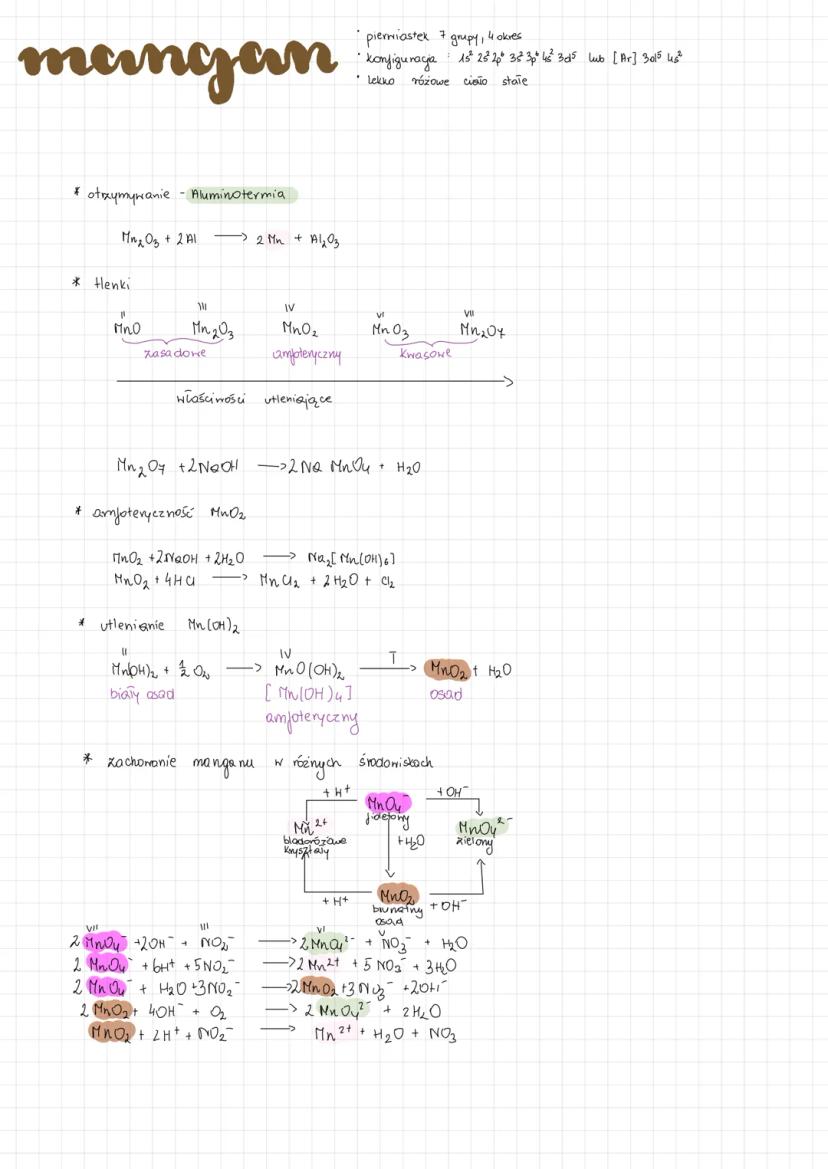 mangan
· pierwiastek 7 grupy, 4 okres
· konfiguracja : 1s² 2s² 2p⁶ 3s² 3p⁶ 4s² 3d⁵ lub [Ar] 3d⁵ 4s²
· lekko różowe ciało stałe
* otrzymywanie - Aluminotermia
Mn₂O₃ + 2Al ⟶ 2 Mn + Al₂O₃
* tlenki
II III IV VI VII
MnO Mn₂O₃ MnO₂ MnO₃ Mn₂O₇
zasadowe amfoteryczny kwasowe
właściwości utleniające
Mn₂O₇ + 2NaOH ⟶ 2 Na MnO₄ + H₂O
* amfoteryczność MnO₂
MnO₂ + 2NaOH + 2H₂O ⟶ Na₂[Mn(OH)₆]
MnO₂ + 4HCl ⟶ MnCl₂ + 2H₂O + Cl₂
* utlenianie Mn(OH)₂
II IV
Mn(OH)₂ + ½ O₂ ⟶ MnO(OH)₂ T⟶ MnO₂ + H₂O
biały osad [Mn(OH)₄] osad
amfoteryczny
* zachowanie manganu w różnych środowiskach
+ H⁺ MnO₄⁻ + OH⁻
fioletowy
Mn²⁺ MnO₄²⁻
bladoróżowe +H₂O zielony
kryształy
MnO₂
+ H⁺ brunatny + OH⁻
osad
VII III VI V
2 MnO₄⁻ + 2OH⁻ + NO₂⁻ ⟶ 2 MnO₄²⁻ + NO₃⁻ + H₂O
2 MnO₄⁻ + 6H⁺ + 5NO₂⁻ ⟶ 2 Mn²⁺ + 5 NO₃⁻ + 3H₂O
2 MnO₄⁻ + H₂O + 3NO₂⁻ ⟶ 2MnO₂ + 3NO₃⁻ + 2OH⁻
2 MnO₂ + 4OH⁻ + O₂ ⟶ 2 MnO₄²⁻ + 2H₂O
MnO₂ + 2H⁺ + NO₂⁻ ⟶ Mn²⁺ + H₂O + NO₃